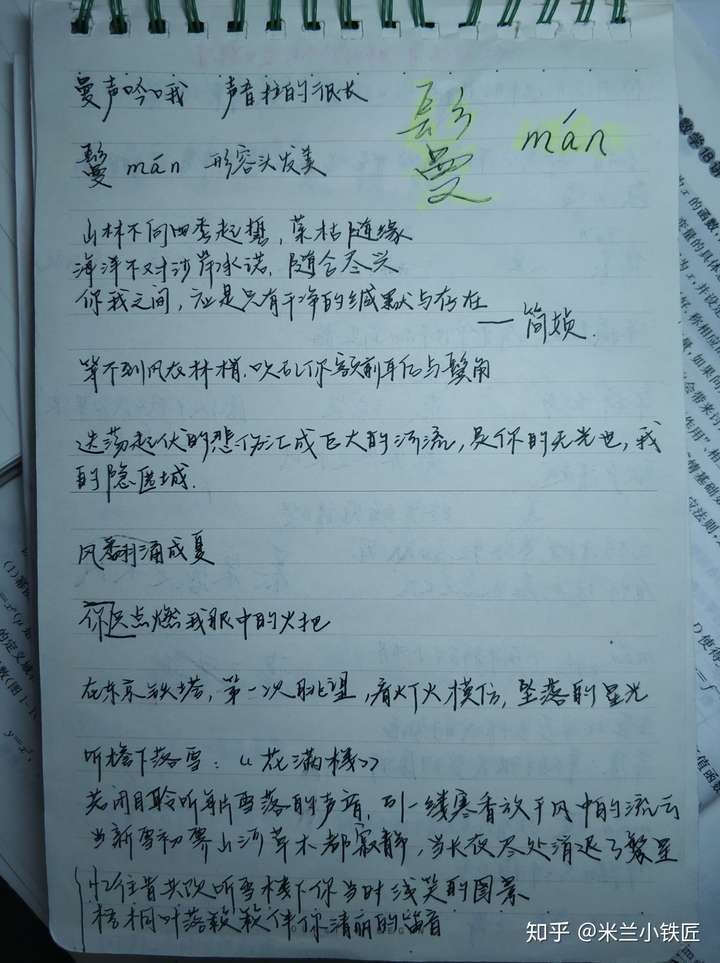 曼声吟哦 声音拉的很长
鬘 mán
鬘 mán 形容头发美
山林不向四季起誓，荣枯随缘
海洋不对沙岸承诺，随合尽兴
你我之间，应是只有干净的缄默与存在
——简媜.
等不到风衣林梢，吹乱你额前耳后与鬓角
迭荡起伏的悲伤汇成巨大的河流，是你的无光也，我
的隐匿城.
风翻涌成夏
你是点燃我眼中的火把
在东京铁塔，第一次眺望，看灯火模仿，坠落的星光
听檐下落雪：《花满楼》
关闭目聆听每片雪落的声音，引一缕寒香放于风中的流云
当新雪初霁山河草木都寂静，当长夜尽处消退了繁星
忆往昔共饮听雪楼下你当时浅笑的图景
梧桐叶落簌簌伴你清丽的笛音
知乎 @米兰小铁匠